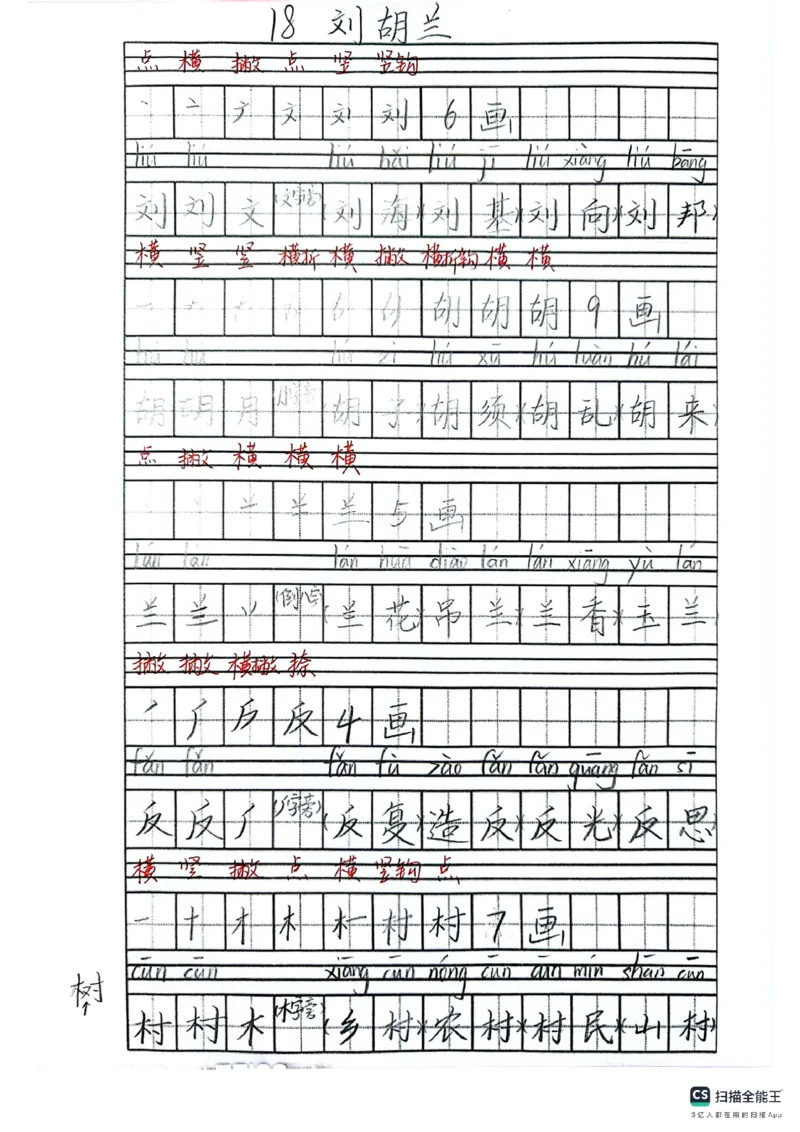 18 刘胡兰
点 横 撇 点 竖 竖钩
丶 亠 文 刘 刘 6 画
liú liú liú hǎi liú jī liú xiàng liú bāng
刘 刘 文 (文字旁) (刘 海) (刘 基) (刘 向) (刘 邦)
横 竖 竖 横折 横 撇 横折钩 横 横
一 十 胡 胡 胡 9 画
hú hú hú zi hú xū hú luàn hú lái
胡 胡 月 (月字旁) (胡 子) (胡 须) (胡 乱) (胡 来)
点 撇 横 横 横
兰 5 画
lán lán lán huā diào lán lán xiāng yù lán
兰 兰 丷 (倒八) (兰 花) (吊 兰) (兰 香) (玉 兰)
撇 撇 横撇 捺
丿 厂 反 4 画
fǎn fǎn fǎn fù zào fǎn fǎn guāng fǎn sī
反 反 厂 (厂字旁) (反 复) (造 反) (反 光) (反 思)
横 竖 撇 点 横 竖钩 点
一 十 才 木 村 村 7 画
cūn cūn xiāng cūn nóng cūn cūn mín shān cūn
树
村 村 木 (木字旁) (乡 村) (农 村) (村 民) (山 村)
CS 扫描全能王
3亿人都在用的扫描App